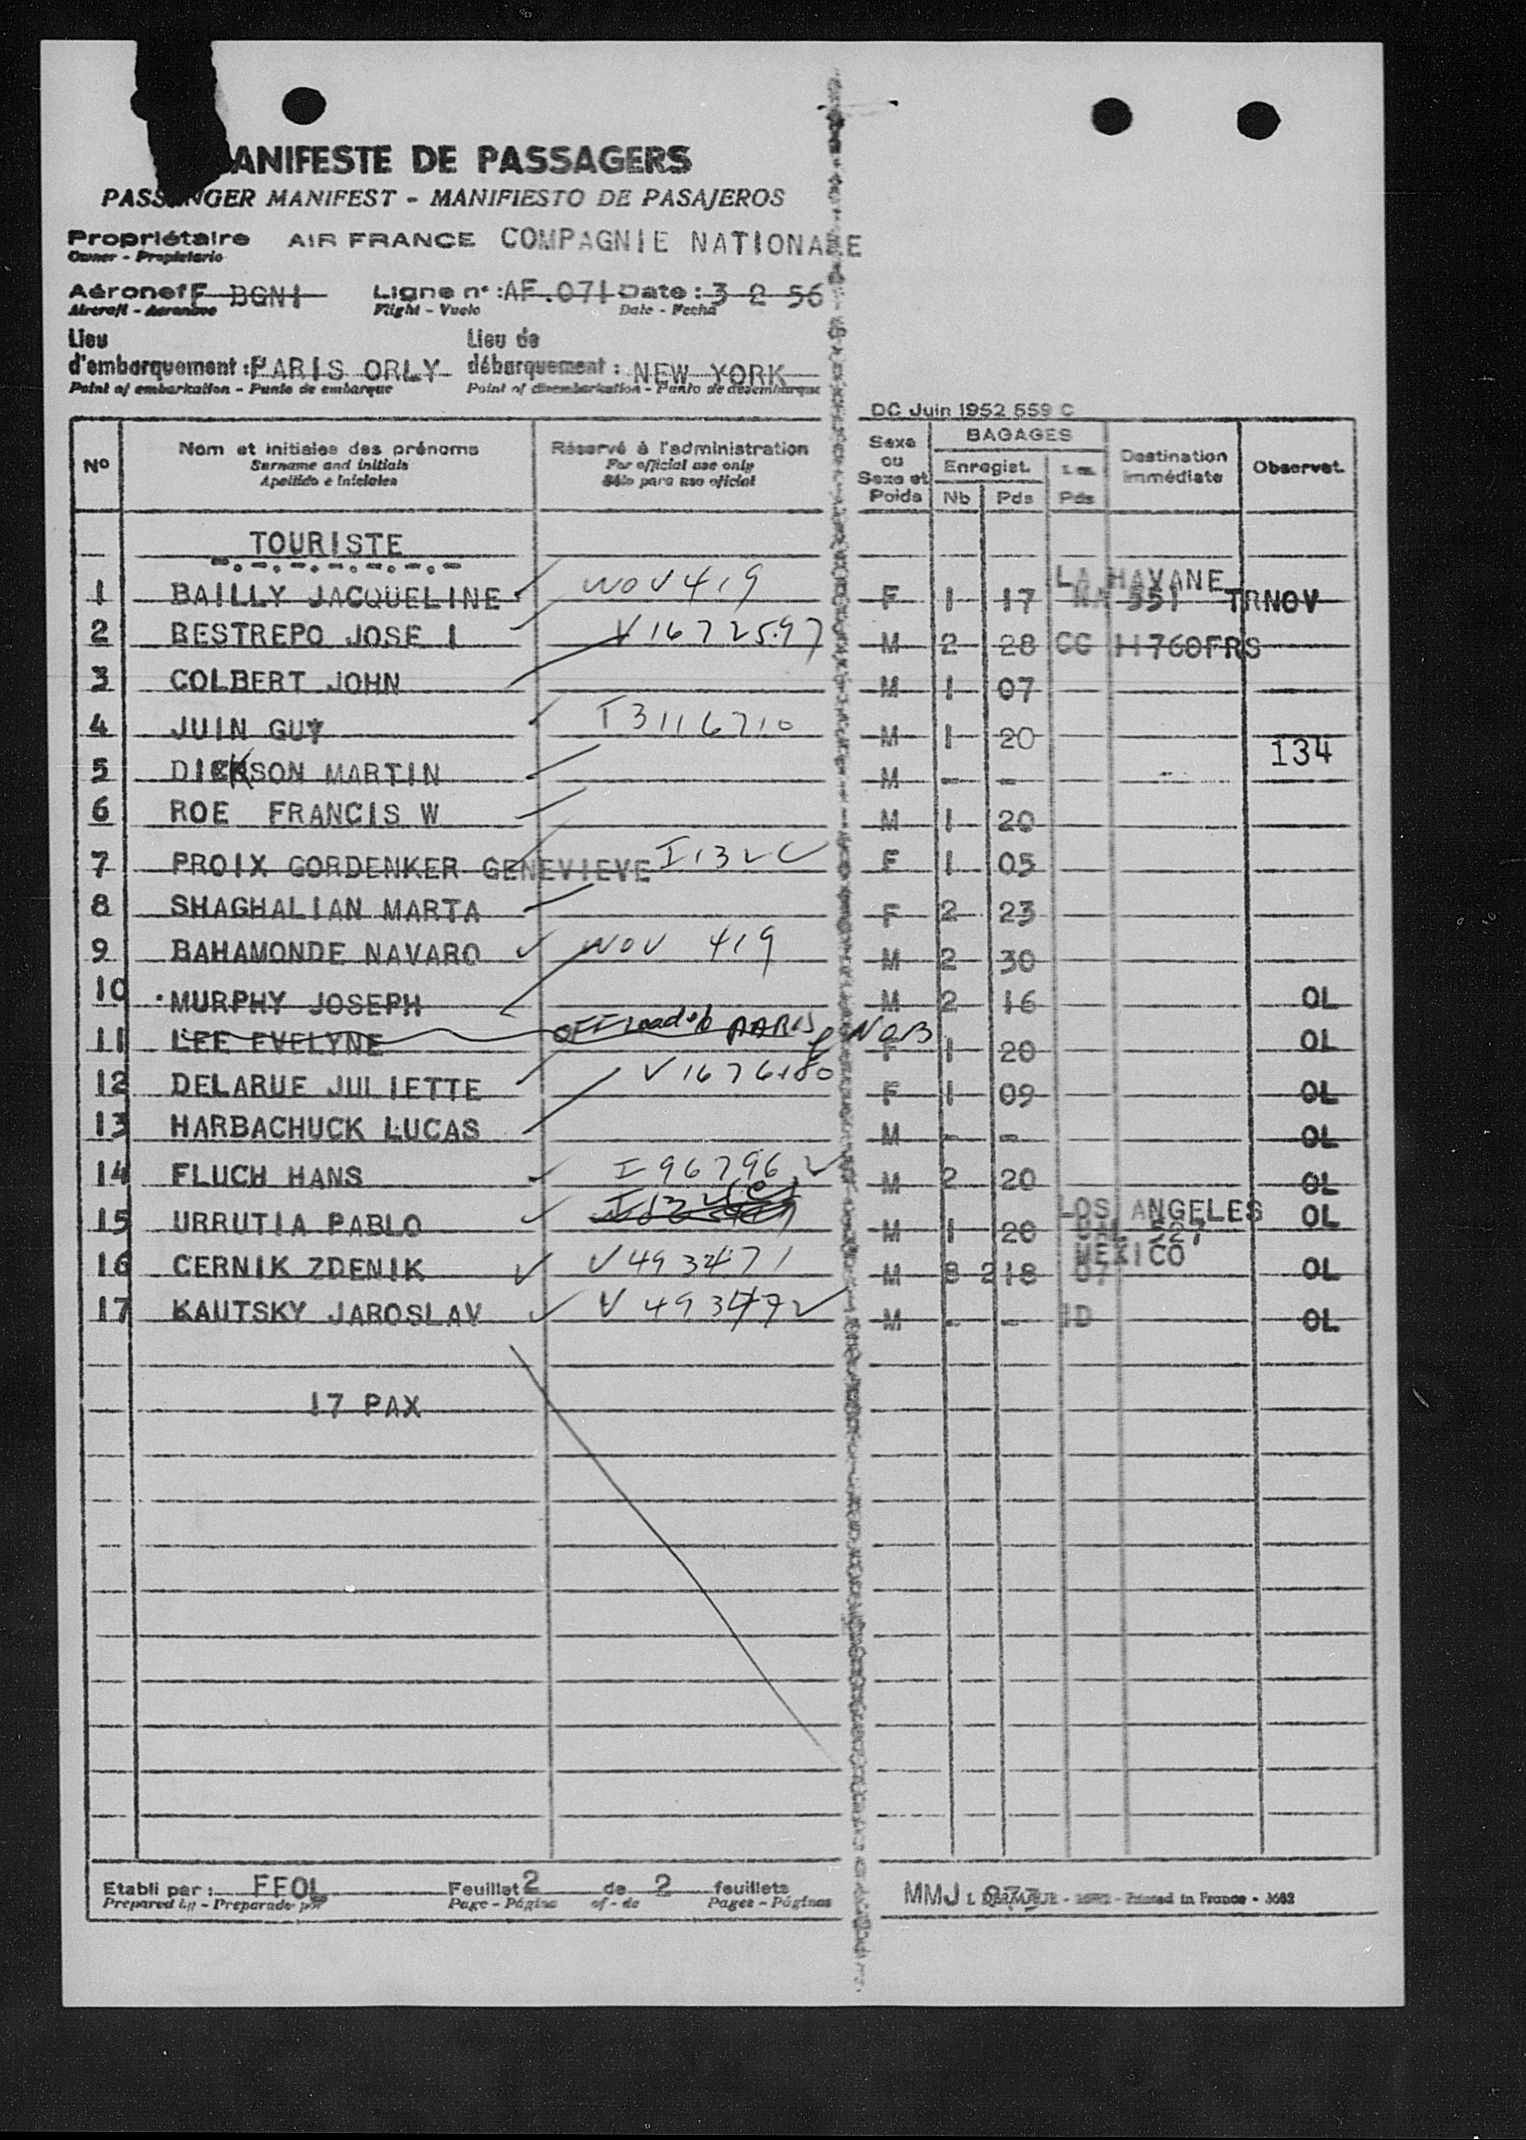 MANIFESTE DE PASSAGERS
PASSENGER MANIFEST - MANIFIESTO DE PASAJEROS
Propriétaire AIR FRANCE COMPAGNIE NATIONALE
Owner - Propietario
Aéronef F BGNI Ligne n° : AF.071 Date : 3 2 56
Aircraft - Aeronave Flight - Vuelo Date - Fecha
Lieu Lieu de
d'embarquement : PARIS ORLY débarquement : NEW YORK
Point of embarkation - Punto de embarque Point of disembarkation - Punto de desembarque
DC Juin 1952 559 C
N° Nom et initiales des prénoms Réservé à l'administration Sexe ou Sexe et Poids BAGAGES Destination immédiate Observat.
Surname and initials For official use only Enregist.
Apellido e iniciales Sólo para uso oficial Nb Pds Pds
TOURISTE
LA HAVANE
1 BAILLY JACQUELINE NOV 419 F 1 17 NA 551 TRNOV
2 BESTREPO JOSE I V1672597 M 2 28 CC H 760FRS
3 COLBERT JOHN M 1 07
4 JUIN GUY I3116710 M 1 20
134
5 DICKSON MARTIN M - -
6 ROE FRANCIS W M 1 20
7 PROIX GORDENKER GENEVIEVE F 1 05
8 SHAGHALIAN MARTA F 2 23
9 BAHAMONDE NAVARO NOV 419 M 2 30
10 MURPHY JOSEPH M 2 16 OL
11 LEE EVELYNE OFFloaded PARIS F 1 20 OL
12 DELARUE JULIETTE V 1676180 F 1 09 OL
13 HARBACHUCK LUCAS M - - OL
14 FLUCH HANS I 96796 M 2 20 OL
LOS ANGELES
15 URRUTIA PABLO M 1 20 527 OL
MEXICO
16 CERNIK ZDENIK V493471 M 8 218 07 OL
17 KAUTSKY JAROSLAV V 493472 M - - ID OL
17 PAX
Etabli par : FFOL Feuillet 2 de 2 feuillets MMJ
Prepared by - Preparado por Page - Página of - de Pages - Páginas Printed in France